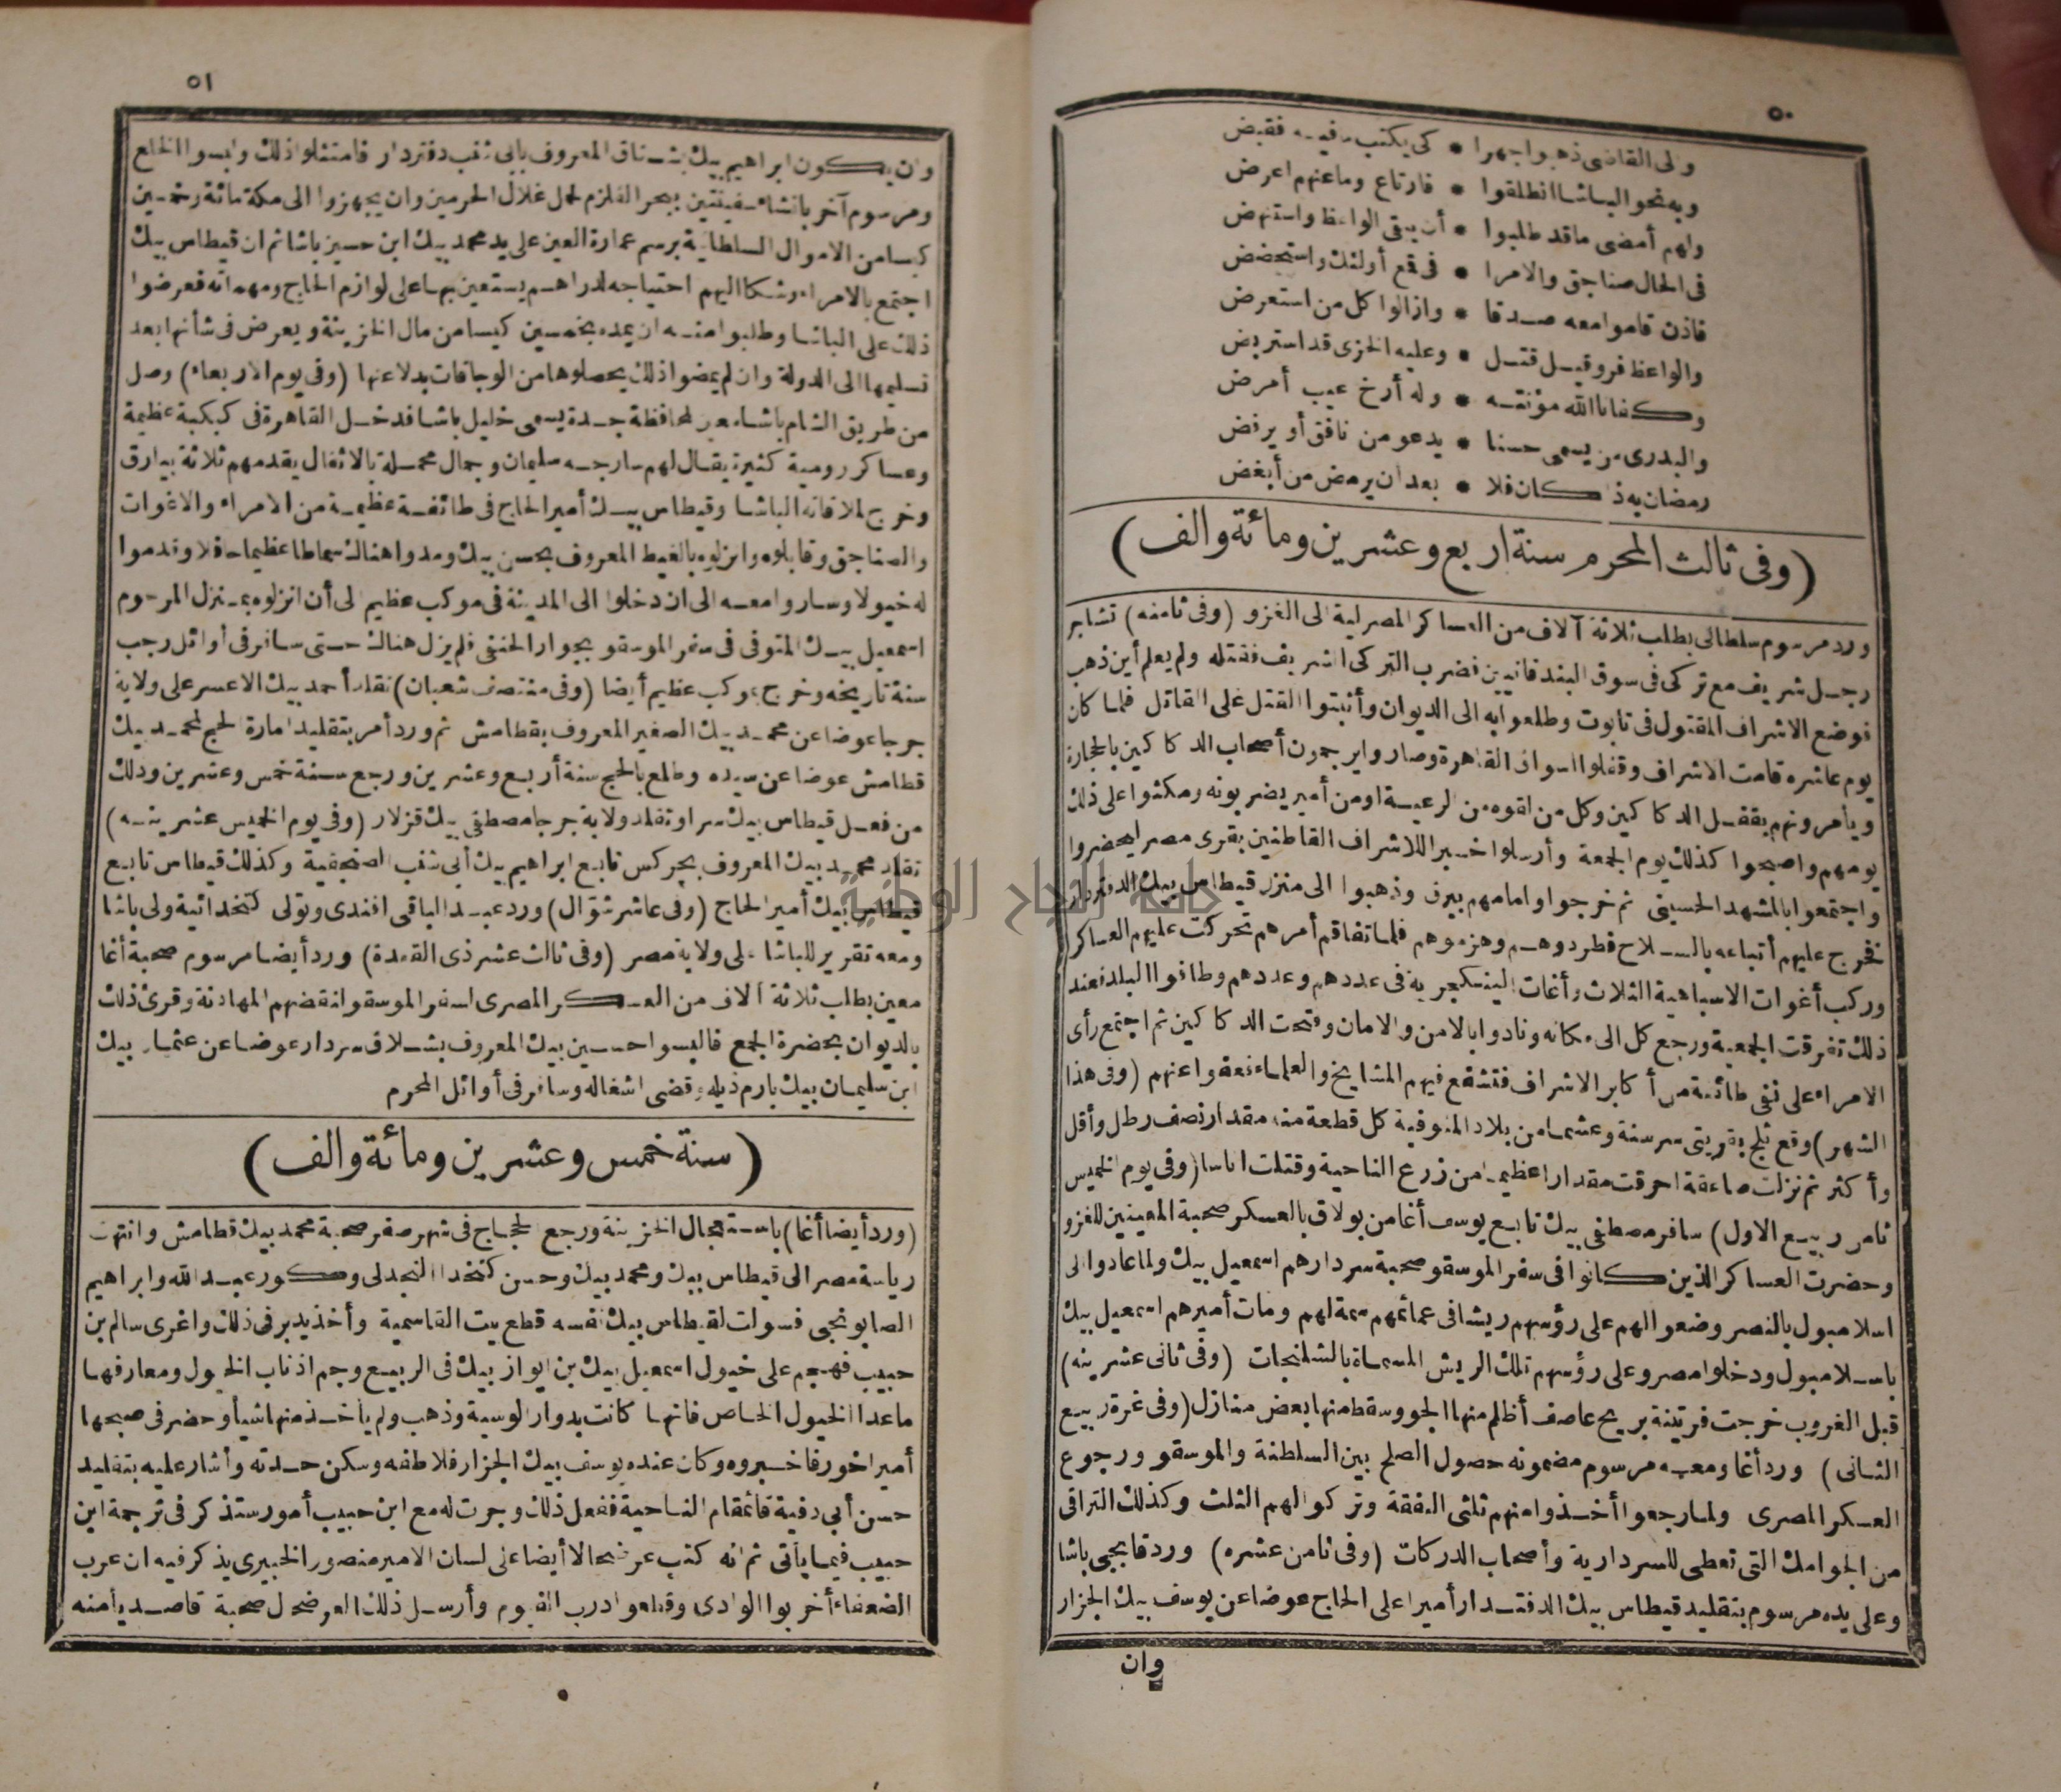 ٥٠
والى القاضى ذهبوا جهرا * كى يكتب فيه فقبض
وبه نحو الباشا انطلقوا * فارتاع وما عنهم اعرض
ولهم أمضى ما قد طلبوا * أن يبقى الواعظ واستنهض
فى الحال صناجق والامرا * فى قع أولئك واستحضض
فاذن قاموا معه صدقا * وازالوا كل من استعرض
والواعظ فر وقيل قتل * وعليه الخزى قد استربض
وكفانا الله مؤنته * وله أرخ عيب أمرض
والبدرى من يسمى حسنا * يدعو من نافق أو يرفض
رمضان به ذا كان فلا * بعد ان يرمض من أبغض
(وفى ثالث المحرم سنة اربع وعشرين ومائة والف)
ورد مرسوم سلطانى بطلب ثلاثة آلاف من العساكر المصرلية الى الغزو (وفى ثامنه) تشاجر
رجل شريف مع تركى فى سوق البندقانيين فضرب التركى الشريف فقتله ولم يعلم أين ذهب
فوضع الاشراف المقتول فى تابوت وطلعوا به الى الديوان وأثبتوا القتل على القاتل فلما كان
يوم عاشره قامت الاشراف وقفلوا اسواق القاهرة وصاروا يرجمون أصحاب الدكاكين بالحجارة
ويأمرونهم بقفل الدكاكين وكل من لقوه من الرعية او من أمير يضربونه ومكثوا على ذلك
يومهم واصبحوا كذلك يوم الجمعة وأرسلوا خبرا للاشراف القاطنين بقرى مصر ليحضروا
واجتمعوا بالمشهد الحسينى ثم خرجوا وامامهم بيرق وذهبوا الى منزل قيطاس بيك الدفتردار
نخرج عليهم أتباعه بالسلاح فطردوهم وهزموهم فلما تفاقم أمرهم تحركت عليهم العساكر
وركب أغوات الاسباهية الثلاث وأغات الينكجرية فى عددهم وعددهم وطافوا البلد فعند
ذلك تفرقت الجمعية ورجع كل الى مكانه ونادوا بالامن والامان وفتحت الدكاكين ثم اجتمع رأى
الامراء على نفى طائفة من أكابر الاشراف فتشفع فيهم المشايخ والعلماء فعفوا عنهم (وفى هذا
الشهر) وقع ثلج بقريتى سرسنة وعشما من بلاد المنوفية كل قطعة منه مقدار نصف رطل وأقل
وأكثر ثم نزلت صاعقة احرقت مقدارا عظيما من زرع الناحية وقتلت اناسا (وفى يوم الخميس
ثامن ربيع الاول) سافر مصطفى بيك تابع يوسف أغا من بولاق بالعسكر صحبة المعينين للغزو
وحضرت العساكر الذين كانوا فى سفر الموسقو صحبة سردارهم اسمعيل بيك ولما عادوا الى
اسلامبول بالنصر وضعوا لهم على رؤسهم ريشا فى عمائمهم سمة لهم ومات أميرهم اسمعيل بيك
باسلامبول ودخلوا مصر وعلى رؤسهم تلك الريش المسماة بالشلنجات (وفى ثانى عشرينه)
قبل الغروب خرجت فرتينة بريح عاصف أظلم منها الجو وسقط منها بعض منازل (وفى غرة ربيع
الثانى) ورد أغا ومعه مرسوم مضمونه حصول الصلح بين السلطنة والموسقو ورجوع
العسكر المصرى ولما رجعوا أخذوا منهم ثلثى النفقة وتركوا لهم الثلث وكذلك التراقى
من الجوامك التى تعطى للسردارية وأصحاب الدركات (وفى ثامن عشره) ورد قابجى باشا
وعلى يده مرسوم بتقليد قيطاس بيك الدفتدار أميرا على الحاج عوضا عن يوسف بيك الجزار
وان
٥١
وان يكون ابراهيم بيك بشناق المعروف بابى شنب دفتردار فامتثلوا ذلك ولبسوا الخلع
ومرسوم آخر بانشاء سفينتين ببحر القلزم لحمل غلال الحرمين وان يجهزوا الى مكة مائة وخمسين
كيسا من الاموال السلطانية برسم عمارة العين على يد محمد بيك ابن حسين باشا ثم ان قيطاس بيك
اجتمع بالامراء وشكا اليهم احتياجه لدراهم يستعين بها على لوازم الحاج ومهماته فعرضوا
ذلك على الباشا وطلبوا منه ان يمده بخمسين كيسا من مال الخزينة ويعرض فى شأنها بعد
تسليمها الى الدولة وان لم يمضوا ذلك يحصلوها من الوجاقات بدلا عنها (وفى يوم الاربعاء) وصل
من طريق الشام باشا معين لمحافظة جدة يسمى خليل باشا فدخل القاهرة فى كبكبة عظيمة
وعساكر رومية كثيرة يقال لهم سارجه سليمان وجمال محملة بالاثقال يقدمهم ثلاثة بيارق
وخرج لملاقاته الباشا وقيطاس بيك أمير الحاج فى طائفة عظيمة من الامراء والاغوات
والصناجق وقابلوه وانزلوه بالغيط المعروف بحسن بيك ومدوا هنالك سماطا عظيما حافلا وقدموا
له خيولا وساروا معه الى ان دخلوا الى المدينة فى موكب عظيم الى أن انزلوه بمنزل المرحوم
اسمعيل بيك المتوفى فى سفر الموسقو بجوار الحنفى فلم يزل هنالك حتى سافر فى أوائل رجب
سنة تاريخه وخرج بموكب عظيم أيضا (وفى منتصف شعبان) تقلد أحمد بيك الاعسر على ولاية
جرجا عوضا عن محمد بيك الصغير المعروف بقطامش ثم ورد أمر بتقليد امارة الحج لمحمد بيك
قطامش عوضا عن سيده وطلع بالحج سنة أربع وعشرين ورجع سنة خمس وعشرين وذلك
من فعل قيطاس بيك سرا وتقلد ولاية جرجا مصطفى بيك قزلار (وفى يوم الخميس عشرينه)
تقلد محمد بيك المعروف بجركس تابع ابراهيم بيك أبى شنب الصنجقية وكذلك قيطاس تابع
قيطاس بيك أمير الحاج (وفى عاشر شوال) ورد عبد الباقى افندى وتولى كتخدائية ولى باشا
ومعه تقرير للباشا على ولاية مصر (وفى ثالث عشر ذى القعدة) ورد أيضا مرسوم صحبة أغا
معين بطلب ثلاثة آلاف من العسكر المصرى لسفر الموسقو لنقضهم المهادنة وقرئ ذلك
بالديوان بحضرة الجمع فالبسوا حسين بيك المعروف بشلاق سردار عوضا عن عثمان بيك
ابن سليمان بيك بارم ذيله وقضى اشغاله وسافر فى أوائل المحرم
(سنة خمس وعشرين ومائة والف)
(ورد أيضا أغا) باستعجال الخزينة ورجع الحجاج فى شهر صفر صحبة محمد بيك قطامش وانتهت
رياسة مصر الى قيطاس بيك ومحمد بيك وحسن كتخدا النجدلى وكور عبد الله وابراهيم
الصابونجى فسولت لقيطاس بيك نفسه قطع بيت القاسمية وأخذ يدبر فى ذلك واغرى سالم بن
حبيب فهجم على خيول اسمعيل بيك بن ايواز بيك فى الربيع وجم اذناب الخيول ومعارفها
ماعدا الخيول الخاص فانها كانت بدوار الوسية وذهب ولم يأخذ منها شيأ وحضر فى صبحها
أميراخور فاخبروه وكان عنده يوسف بيك الجزار فلاطفه وسكن حدته وأشار عليه بتقليد
حسن أبى دفية قائمقام الناحية ففعل ذلك وجرت له مع ابن حبيب أمور ستذكر فى ترجمة ابن
حبيب فيما يأتى ثم انه كتب عرضحالا أيضا على لسان الامير منصور الخبيرى يذكر فيه ان عرب
الضعفاء أخربوا الوادى وقطعوا درب الفيوم وأرسل ذلك العرضحال صحبة قاصد يأمنه
جامعة النجاح الوطنية